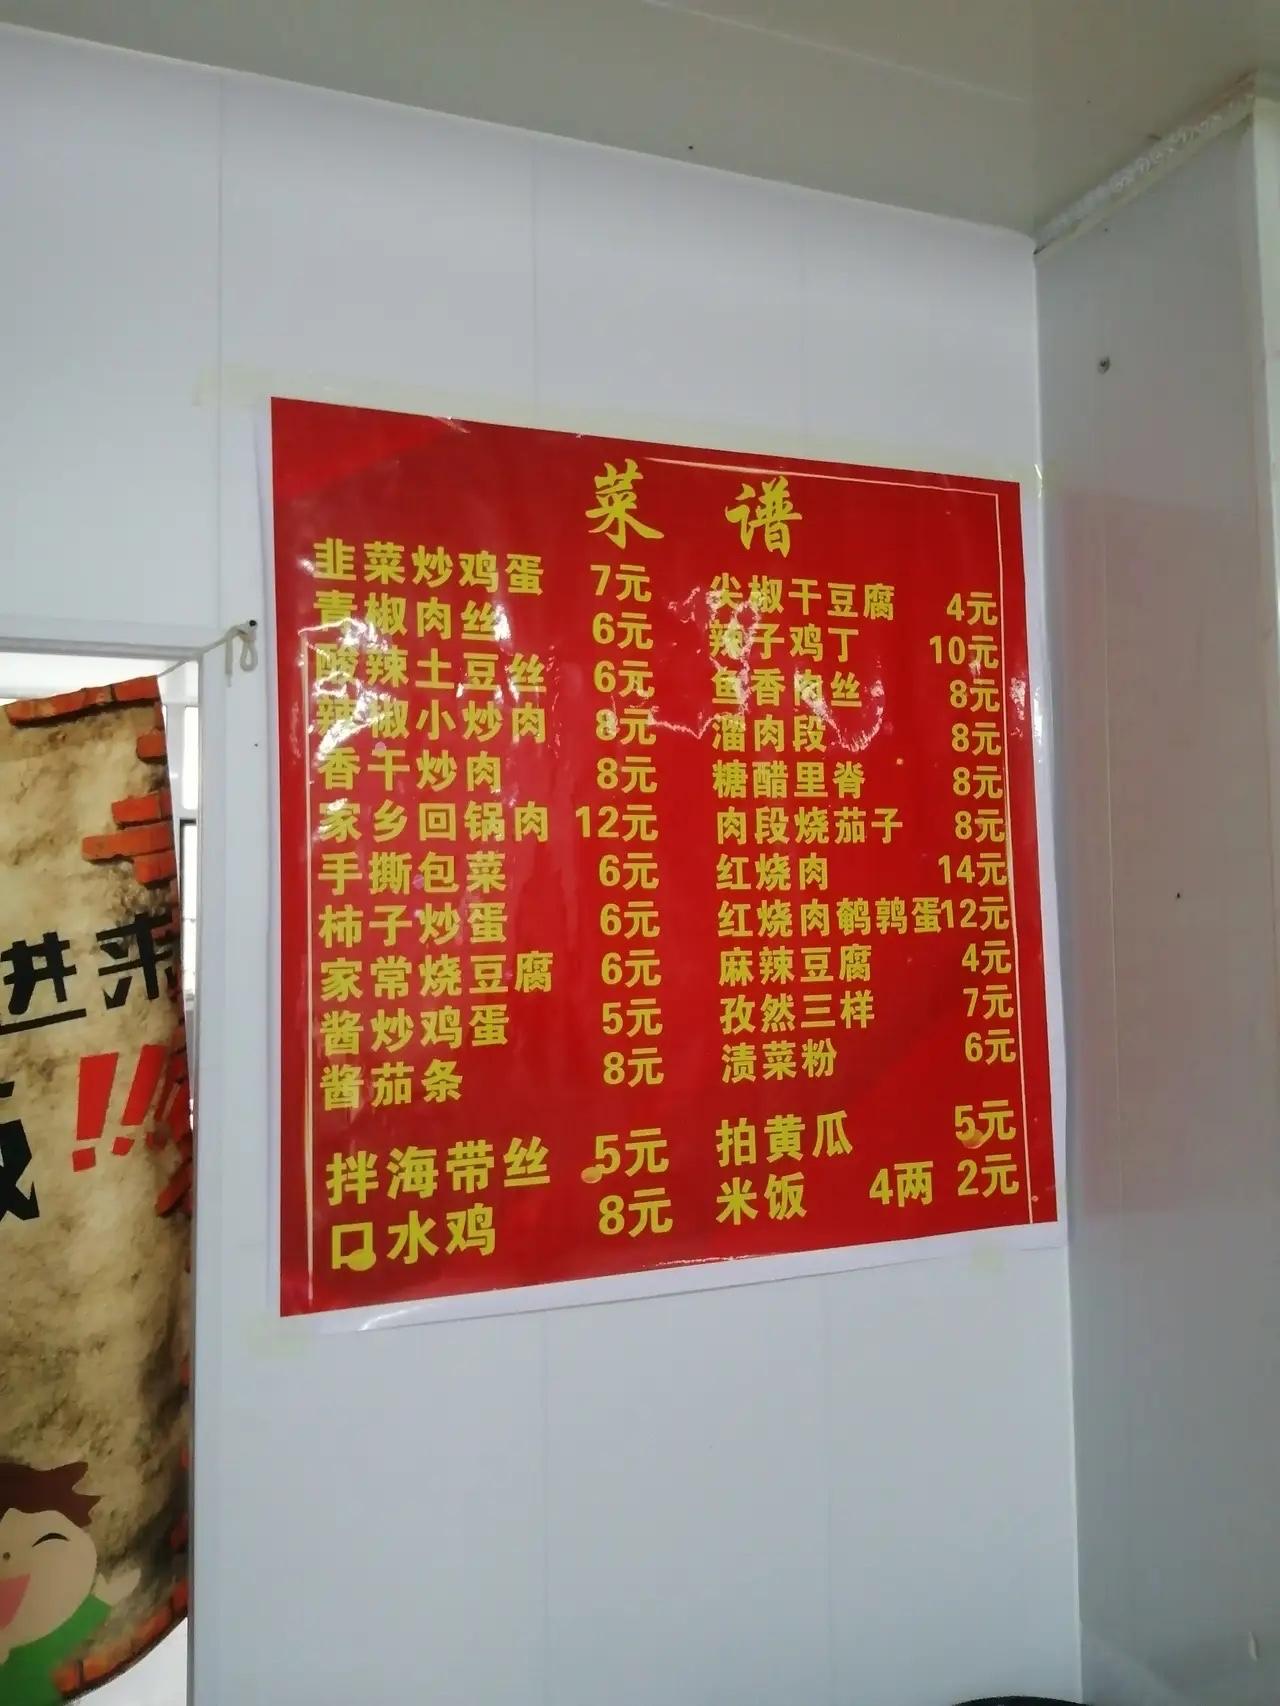 菜 谱
韭菜炒鸡蛋 7元
青椒肉丝 6元
酸辣土豆丝 6元
辣椒小炒肉 8元
香干炒肉 8元
家乡回锅肉 12元
手撕包菜 6元
柿子炒蛋 6元
家常烧豆腐 6元
酱炒鸡蛋 5元
酱茄条 8元
拌海带丝 5元
口水鸡 8元
尖椒干豆腐 4元
辣子鸡丁 10元
鱼香肉丝 8元
溜肉段 8元
糖醋里脊 8元
肉段烧茄子 8元
红烧肉 14元
红烧肉鹌鹑蛋12元
麻辣豆腐 4元
孜然三样 7元
渍菜粉 6元
拍黄瓜 5元
米饭 4两 2元
进来
!!!